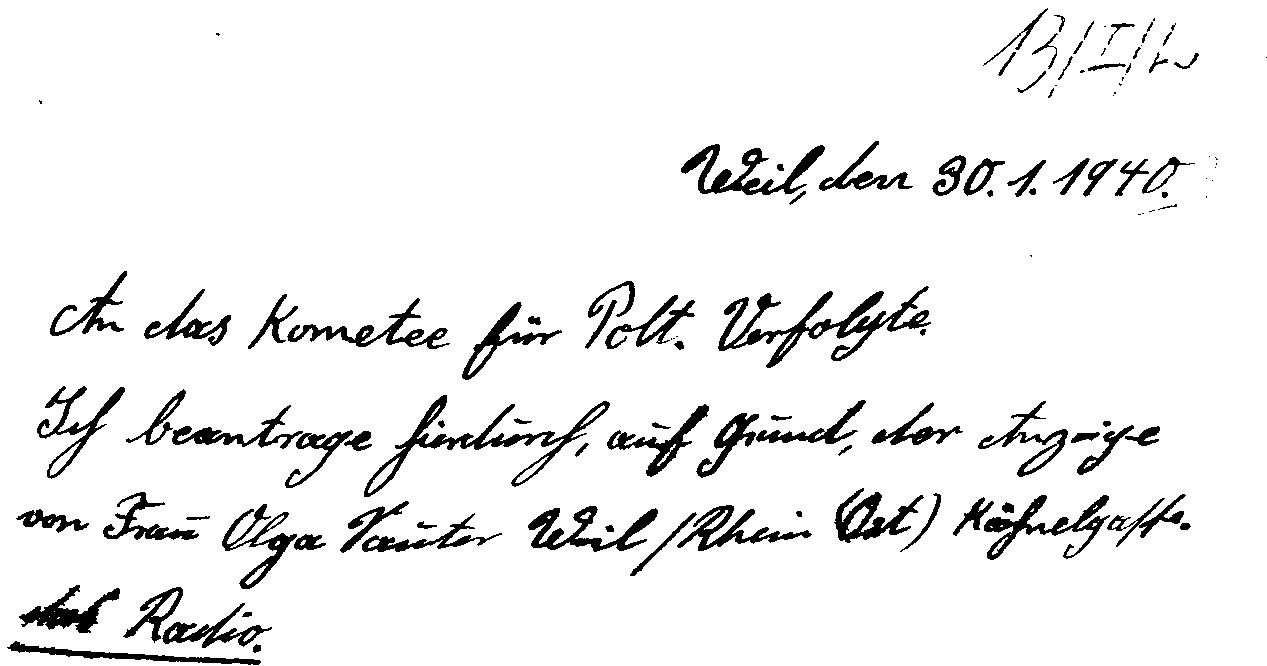 13/I/L
Weil, den 30.1.1940.
An das Kometee für Polt. Verfolgte.
Ich beantrage hierdurch, auf Grund, der Anzeige
von Frau Olga Vauter Weil/Rhein (Ost) Kähnelgasse.
das Radio.